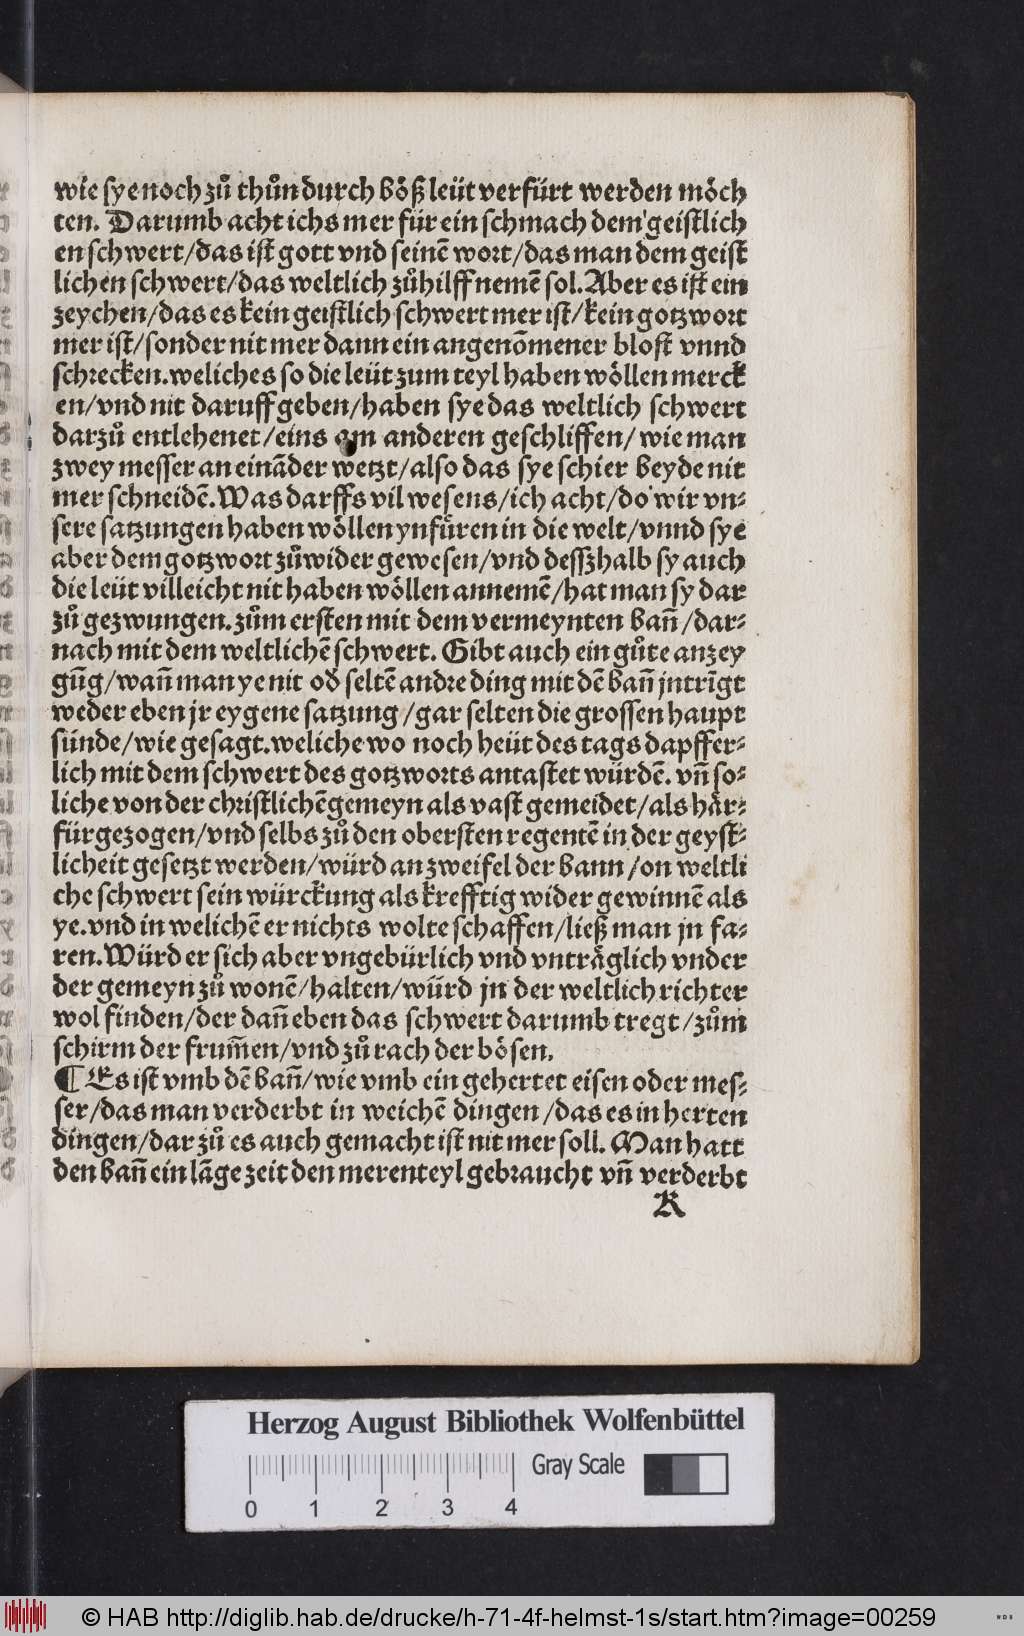 wie sye noch zuͦ thuͦn durch boͤß leüt verfuͤrt werden moͤch
ten. Darumb acht ichs mer fuͤr ein schmach dem geistlich
en schwert/das ist gott vnd seinē wort/das man dem geist
lichen schwert/das weltlich zuͦhilff nemē sol. Aber es ist ein
zeychen/das es kein geistlich schwert mer ist/kein gotzwort
mer ist/sonder nit mer dann ein angenōmener blost vnnd
schrecken. weliches so die leüt zum teyl haben woͤllen merck
en/vnd nit daruff geben/haben sye das weltlich schwert
darzuͦ entlehenet/eins am anderen geschliffen/wie man
zwey messer an eināder wetzt/also das sye schier beyde nit
mer schneidē. Was darffs vil wesens/ich acht/do wir vn⸗
sere satzungen haben woͤllen ynfuͤren in die welt/vnnd sye
aber dem gotzwort zuͦwider gewesen/vnd desszhalb sy auch
die leüt villeicht nit haben woͤllen annemē/hat man sy dar
zuͦ gezwungen. zuͦm ersten mit dem vermeynten bañ/dar⸗
nach mit dem weltlichē schwert. Gibt auch ein guͦte anzey
gūg/wañ man ye nit od̄ seltē andre ding mit dē bañ jntrīgt
weder eben jr eygene satzung/gar selten die grossen haupt
sünde/wie gesagt. weliche wo noch heüt des tags dapffer⸗
lich mit dem schwert des gotzworts antastet würdē. vñ so⸗
liche von der christlichē gemeyn als vast gemeidet/als haͤr⸗
fürgezogen/vnd selbs zuͦ den obersten regentē in der geyst⸗
licheit gesetzt werden/würd an zweifel der bann/on weltli
che schwert sein würckung als krefftig wider gewinnē als
ye. vnd in welichē er nichts wolte schaffen/ließ man jn fa⸗
ren. Würd er sich aber vngebürlich vnd vntraͤglich vnder
der gemeyn zuͦ wonē/halten/würd jn der weltlich richter
wol finden/der dañ eben das schwert darumb tregt/zuͦm
schirm der frum̄en/vnd zuͦ rach der boͤsen.
¶ Es ist vmb dē bañ/wie vmb ein gehertet eisen oder mes⸗
ser/das man verderbt in weichē dingen/das es in herten
dingen/dar zuͦ es auch gemacht ist nit mer soll. Man hatt
den bañ ein lāge zeit den merenteyl gebraucht vñ verderbt
K
Herzog August Bibliothek Wolfenbüttel
Gray Scale
0 1 2 3 4
© HAB http://diglib.hab.de/drucke/h-71-4f-helmst-1s/start.htm?image=00259